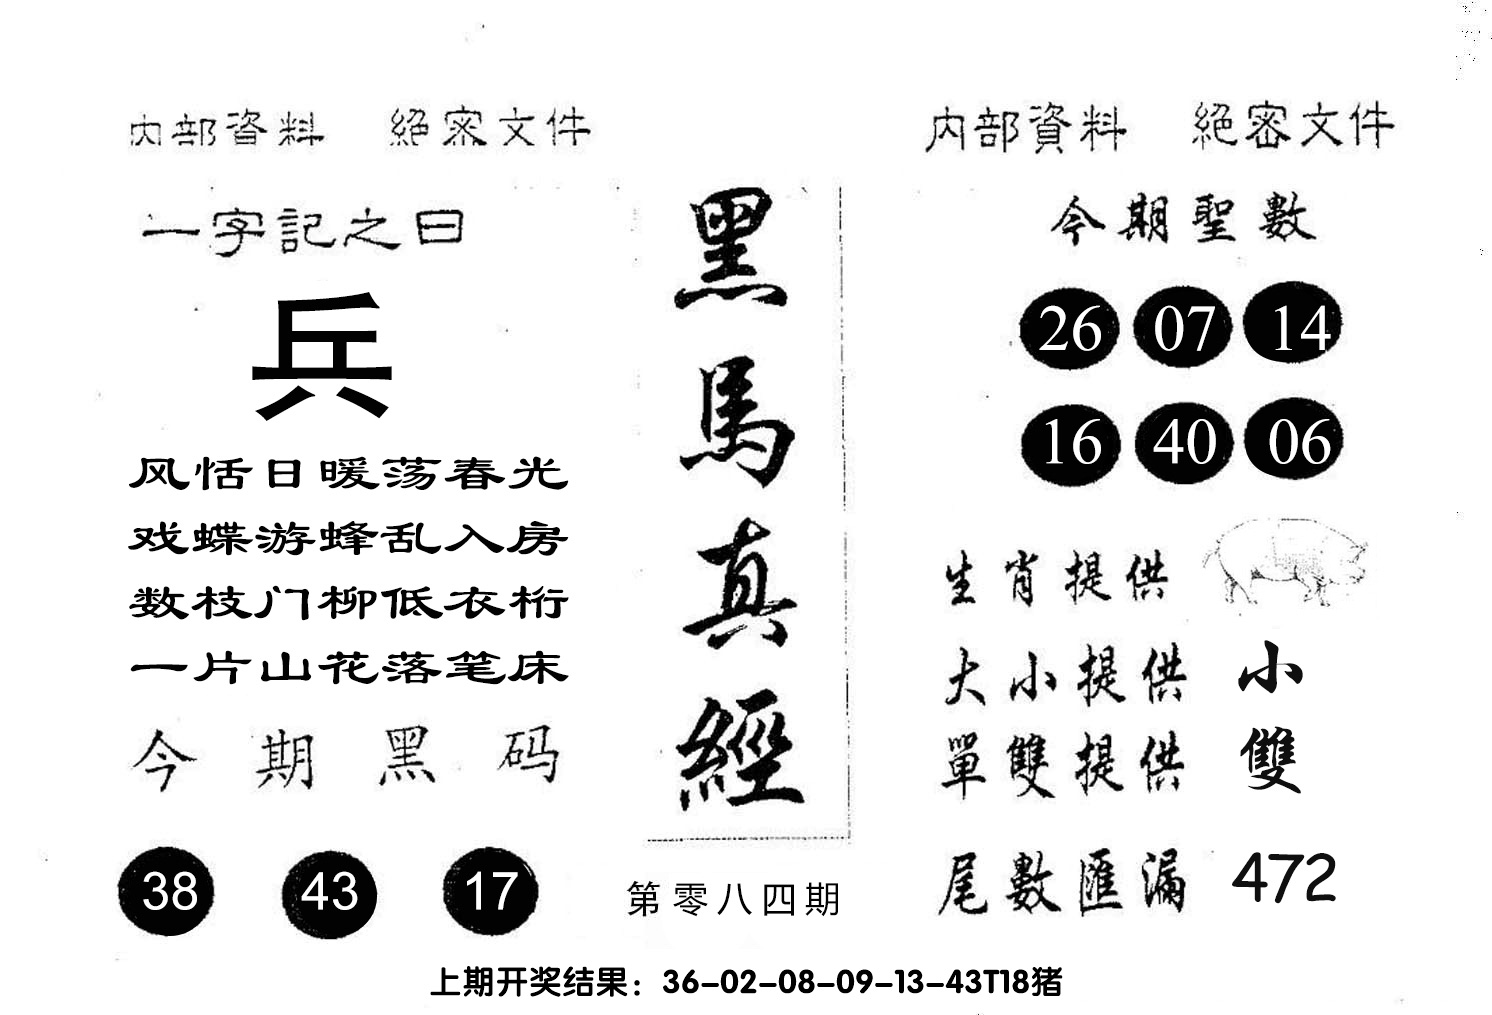 內部資料 絕密文件
一字記之曰
兵
风恬日暖荡春光
戏蝶游蜂乱入房
数枝门柳低衣桁
一片山花落笔床
今期黑码
38 43 17
黑馬真經
第零八四期
內部資料 絕密文件
今期聖數
26 07 14
16 40 06
生肖提供
大小提供 小
單雙提供 雙
尾數匯漏 472
上期开奖结果：36-02-08-09-13-43T18猪